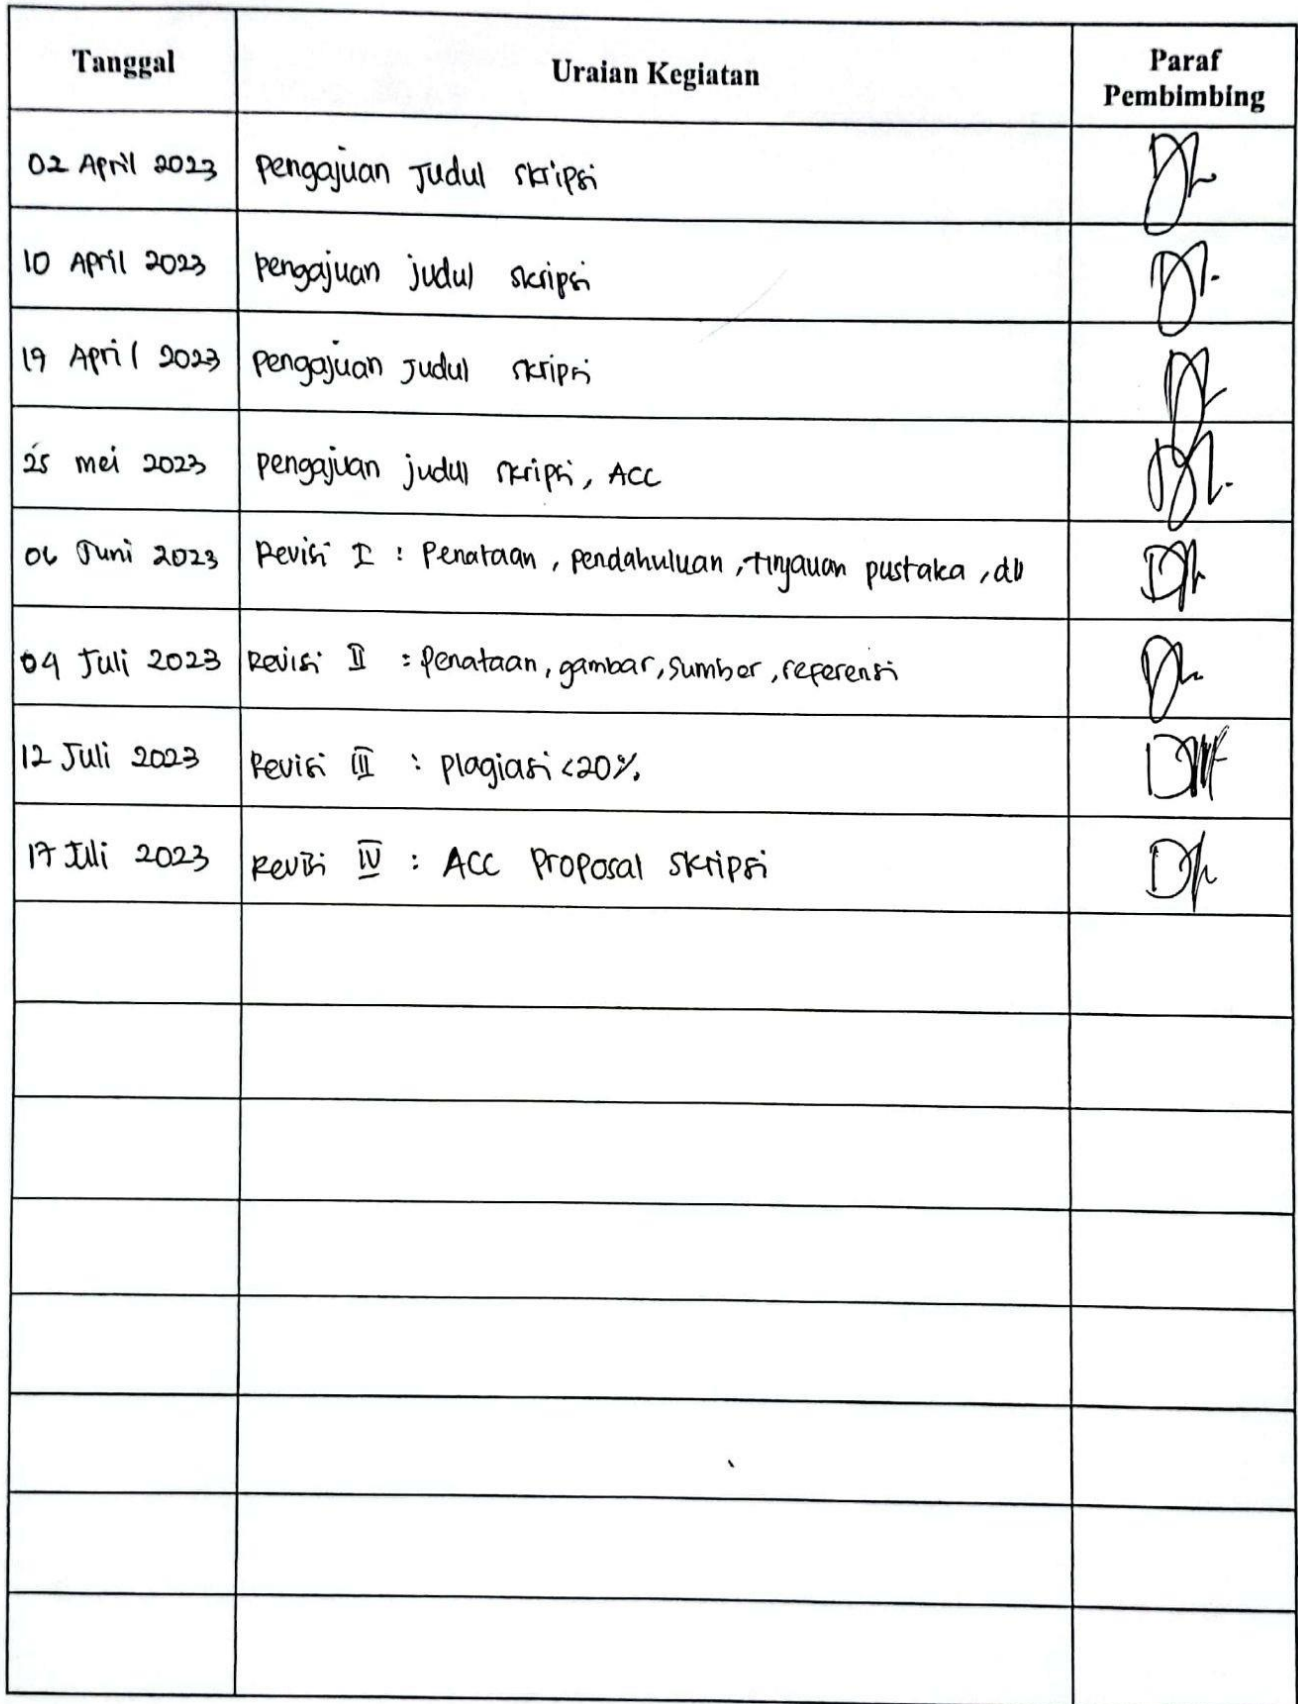 Tanggal Uraian Kegiatan Paraf Pembimbing
02 April 2023 Pengajuan Judul skripsi
10 April 2023 pengajuan judul skripsi
19 April 2023 Pengajuan Judul skripsi
25 mei 2023 pengajuan judul skripsi, ACC
06 Juni 2023 Revisi I : Penataan, pendahuluan, tinjauan pustaka, dll
04 Juli 2023 Revisi II : penataan, gambar, sumber, referensi
12 Juli 2023 Revisi III : plagiasi <20%
17 Juli 2023 Revisi IV : ACC Proposal Skripsi